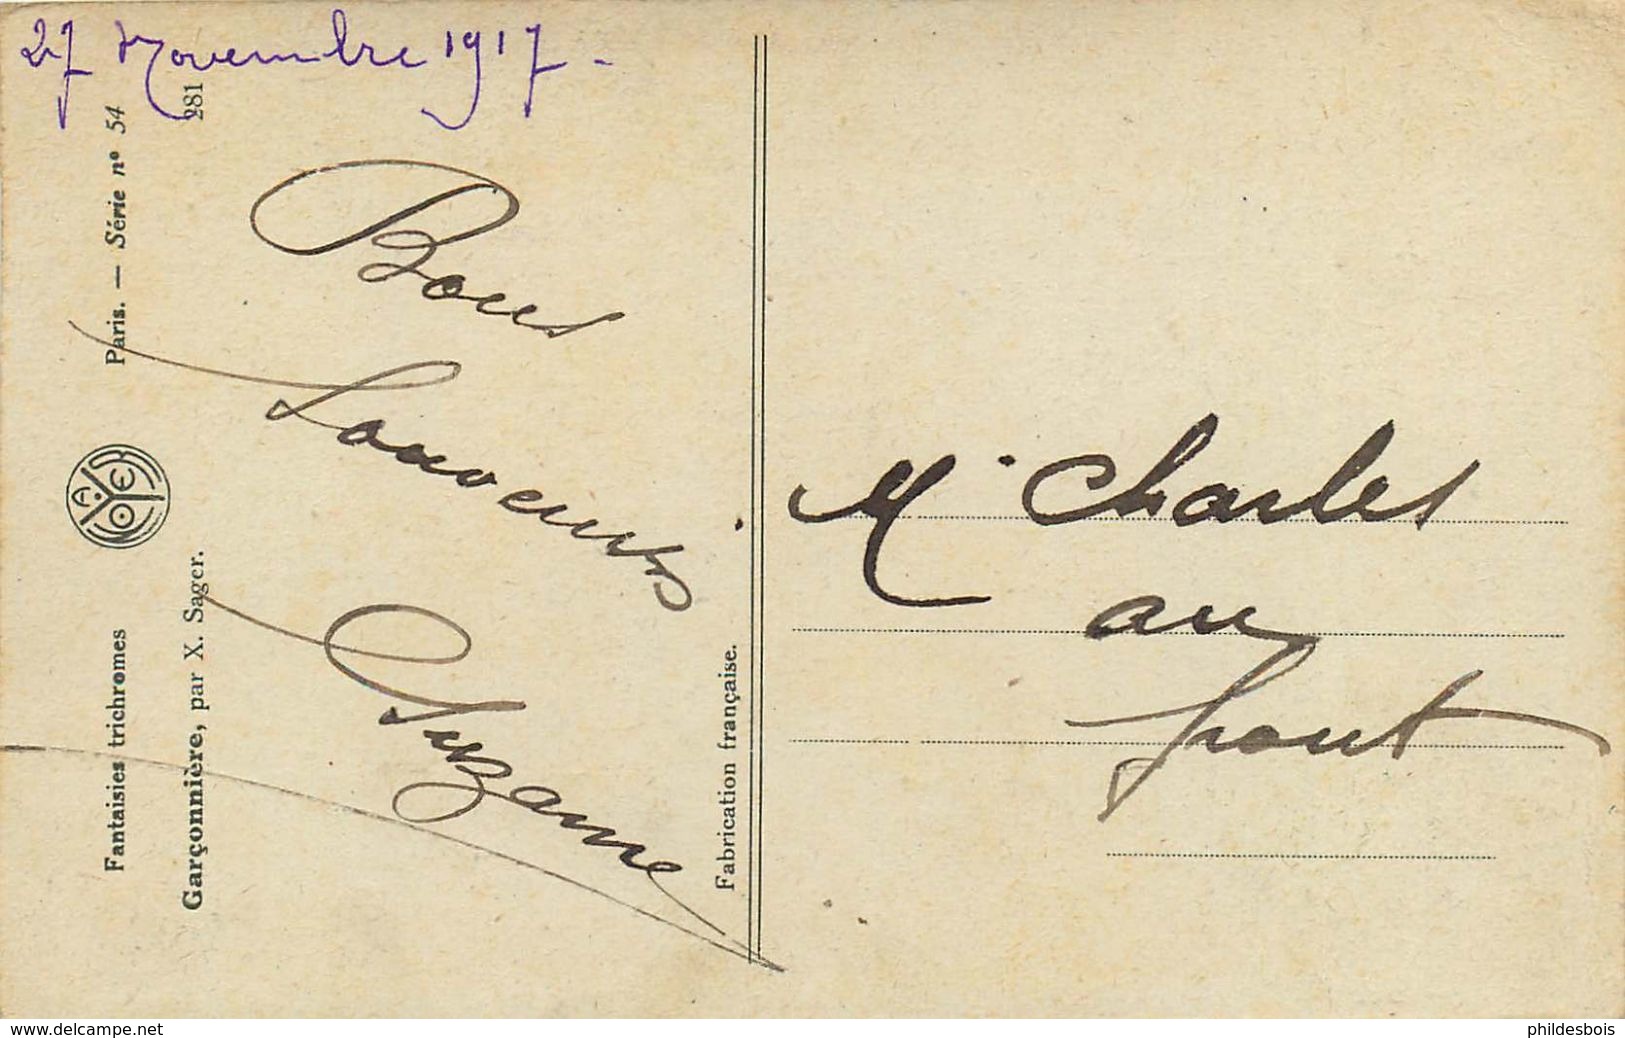 27 Novembre 1917.
Fantaisies trichromes
Paris. — Série nº 54
Garçonnière, par X. Sager.
281
Bons
Souvenirs
Suzanne
Fabrication française.
M. Charles
au
front
www.delcampe.net
phildesbois